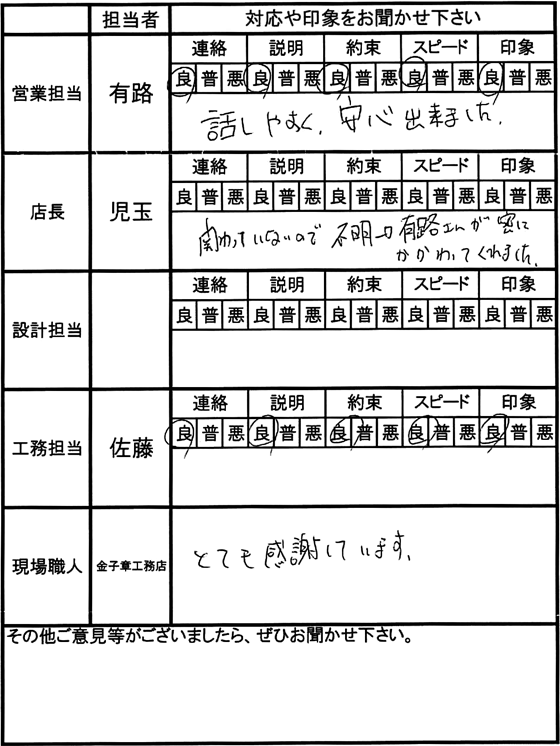 担当者 対応や印象をお聞かせ下さい
営業担当 有路
連絡 説明 約束 スピード 印象
良 普 悪 良 普 悪 良 普 悪 良 普 悪 良 普 悪
話しやすく、安心出来ました。
店長 児玉
連絡 説明 約束 スピード 印象
良 普 悪 良 普 悪 良 普 悪 良 普 悪 良 普 悪
関わっていないので 不明 有路さんが 密に
かかわってくれました。
設計担当
連絡 説明 約束 スピード 印象
良 普 悪 良 普 悪 良 普 悪 良 普 悪 良 普 悪
工務担当 佐藤
連絡 説明 約束 スピード 印象
良 普 悪 良 普 悪 良 普 悪 良 普 悪 良 普 悪
現場職人 金子章工務店
とても感謝しています。
その他ご意見等がございましたら、ぜひお聞かせ下さい。